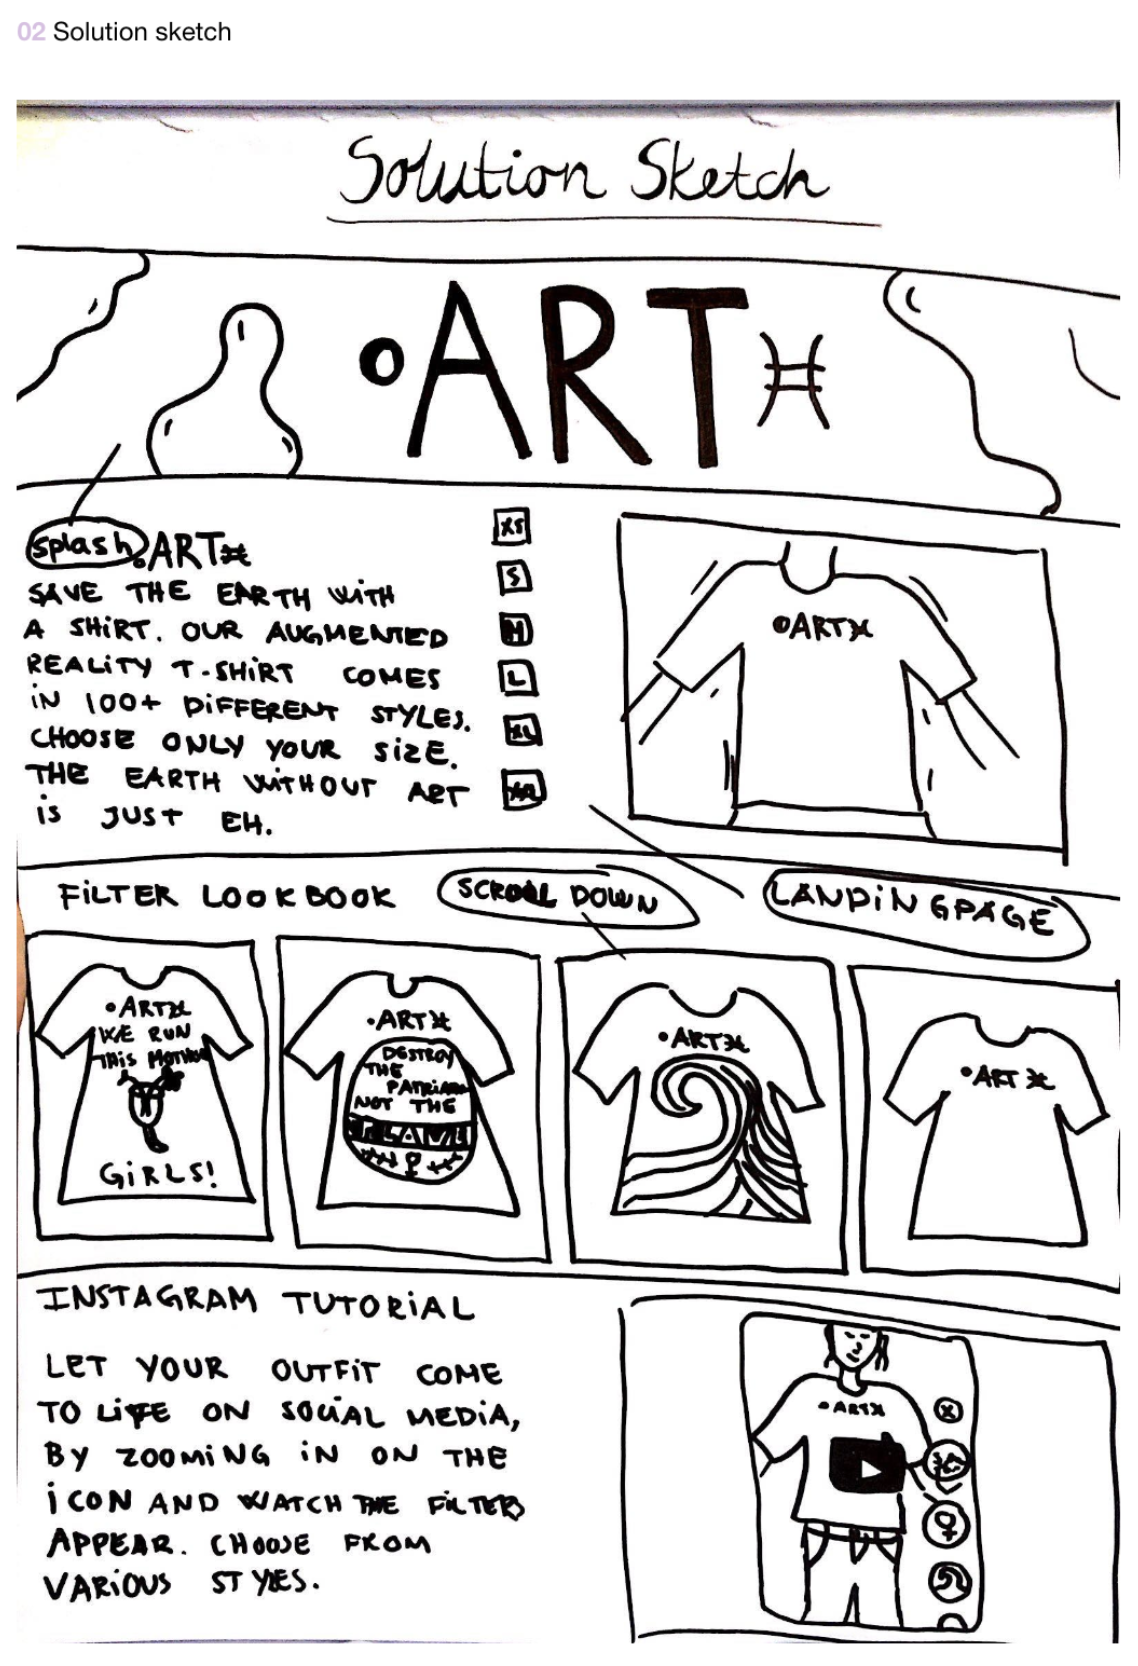 02 Solution sketch
Solution Sketch
•ART
Splash
•ART
SAVE THE EARTH WITH
A SHIRT. OUR AUGMENTED
REALITY T-SHIRT COMES
IN 100+ DIFFERENT STYLES.
CHOOSE ONLY YOUR SIZE.
THE EARTH WITHOUT ART
IS JUST EH.
XS
S
M
L
XL
•ART
FILTER LOOKBOOK
SCROLL DOWN
LANDINGPAGE
•ART
WE RUN
THIS MOTHER
GIRLS!
•ART
DESTROY
THE
NOT THE
•ART
•ART
INSTAGRAM TUTORIAL
LET YOUR OUTFIT COME
TO LIFE ON SOCIAL MEDIA,
BY ZOOMING IN ON THE
ICON AND WATCH THE FILTERS
APPEAR. CHOOSE FROM
VARIOUS STYLES.
•ART